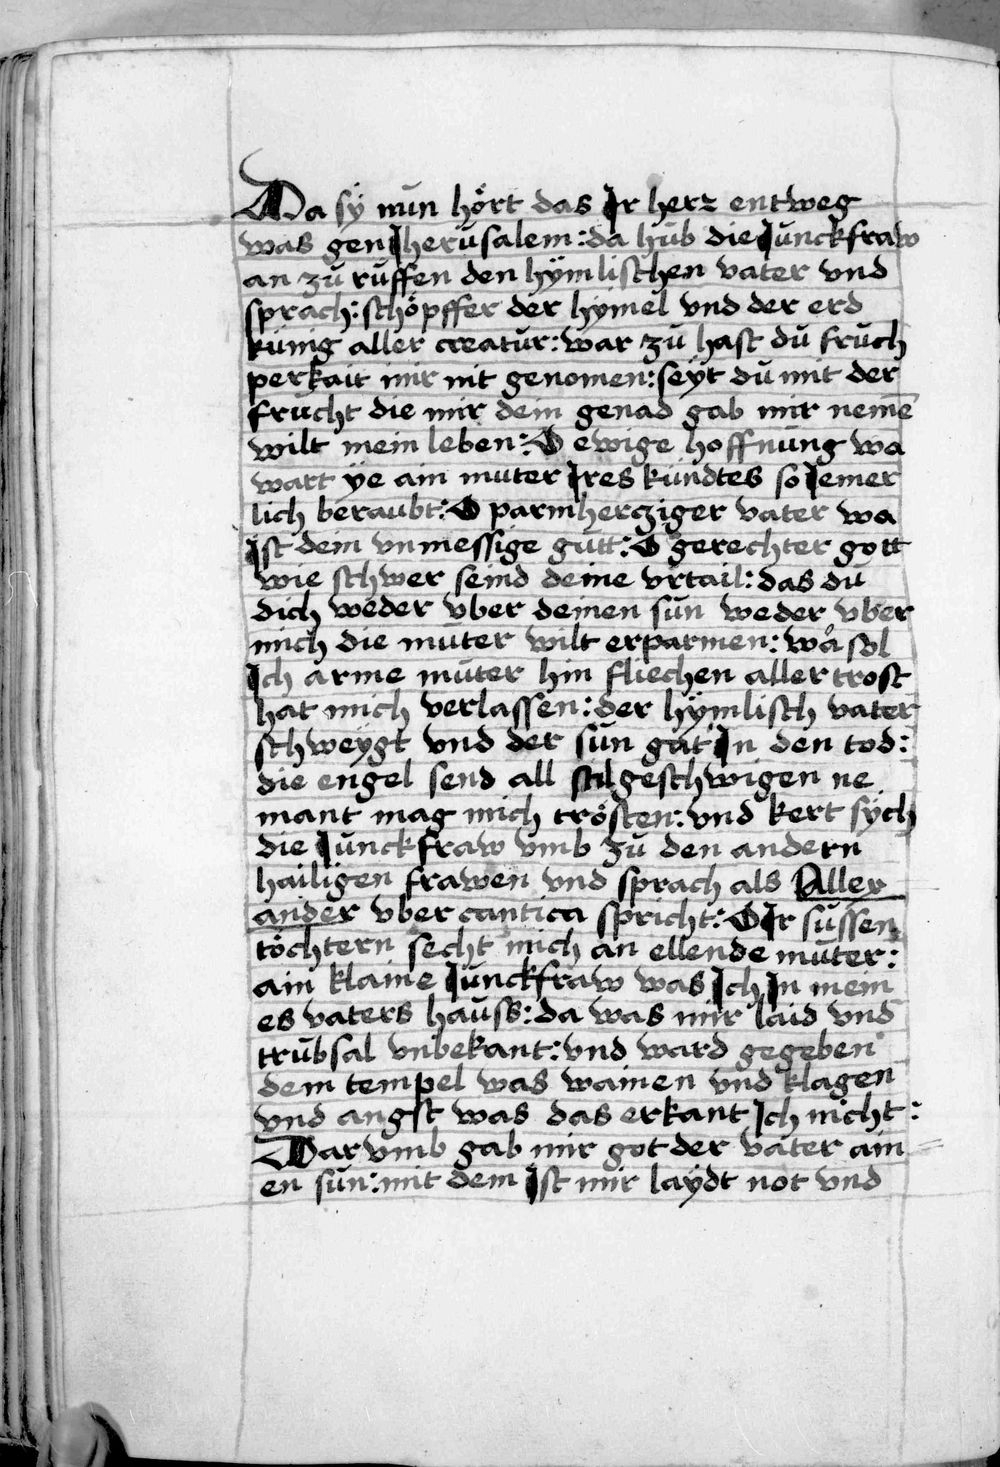 Da sÿ nun hört das Ir herz entweg
was gen Iherusalem: da hub die Iunckfraw
an zu ruffen den hÿmlischen vater vnd
sprach: schöpffer der hÿmel vnd der erd
künig aller creatur: war zu hast du fruch
perkait mir nit genomen: seÿt du mit der
frucht die mir dein genad gab mir nemē
wilt mein leben: O ewige hoffnung wa
wart ÿe ain muter Ires kindtes so Iemer
lich beraubt: O parmhercziger vater wa
Ist dein vnmessige gutt: O gerechter gott
wie schwer seind deine vrtail: das du
dich weder vber deinen sun weder vber
mich die muter wilt erparmen: wa sol
Ich arme muter hin fliechen aller trost
hat mich verlassen: der hÿmlisch vater
schweÿgt vnd der sun gat In den tod:
die engel send all stil geschwigen ne
mant mag mich trösten: vnd kert sÿch
die Iunckfraw vmb zu den andern
hailigen frawen vnd sprach als Allex
ander vber cantica spricht: O Ir süssen
töchtern secht mich an ellende muter:
ain klaine Iunckfraw was Ich In mein
es vaters hauss: da was mir laid vnd
trübsal vnbekant: vnd ward gegeben
dem tempel was wainen vnd klagen
vnd angst was das erkant Ich nicht:
Darvmb gab mir got der vater ain
en sun: mit dem Ist mir laÿdt not vnd